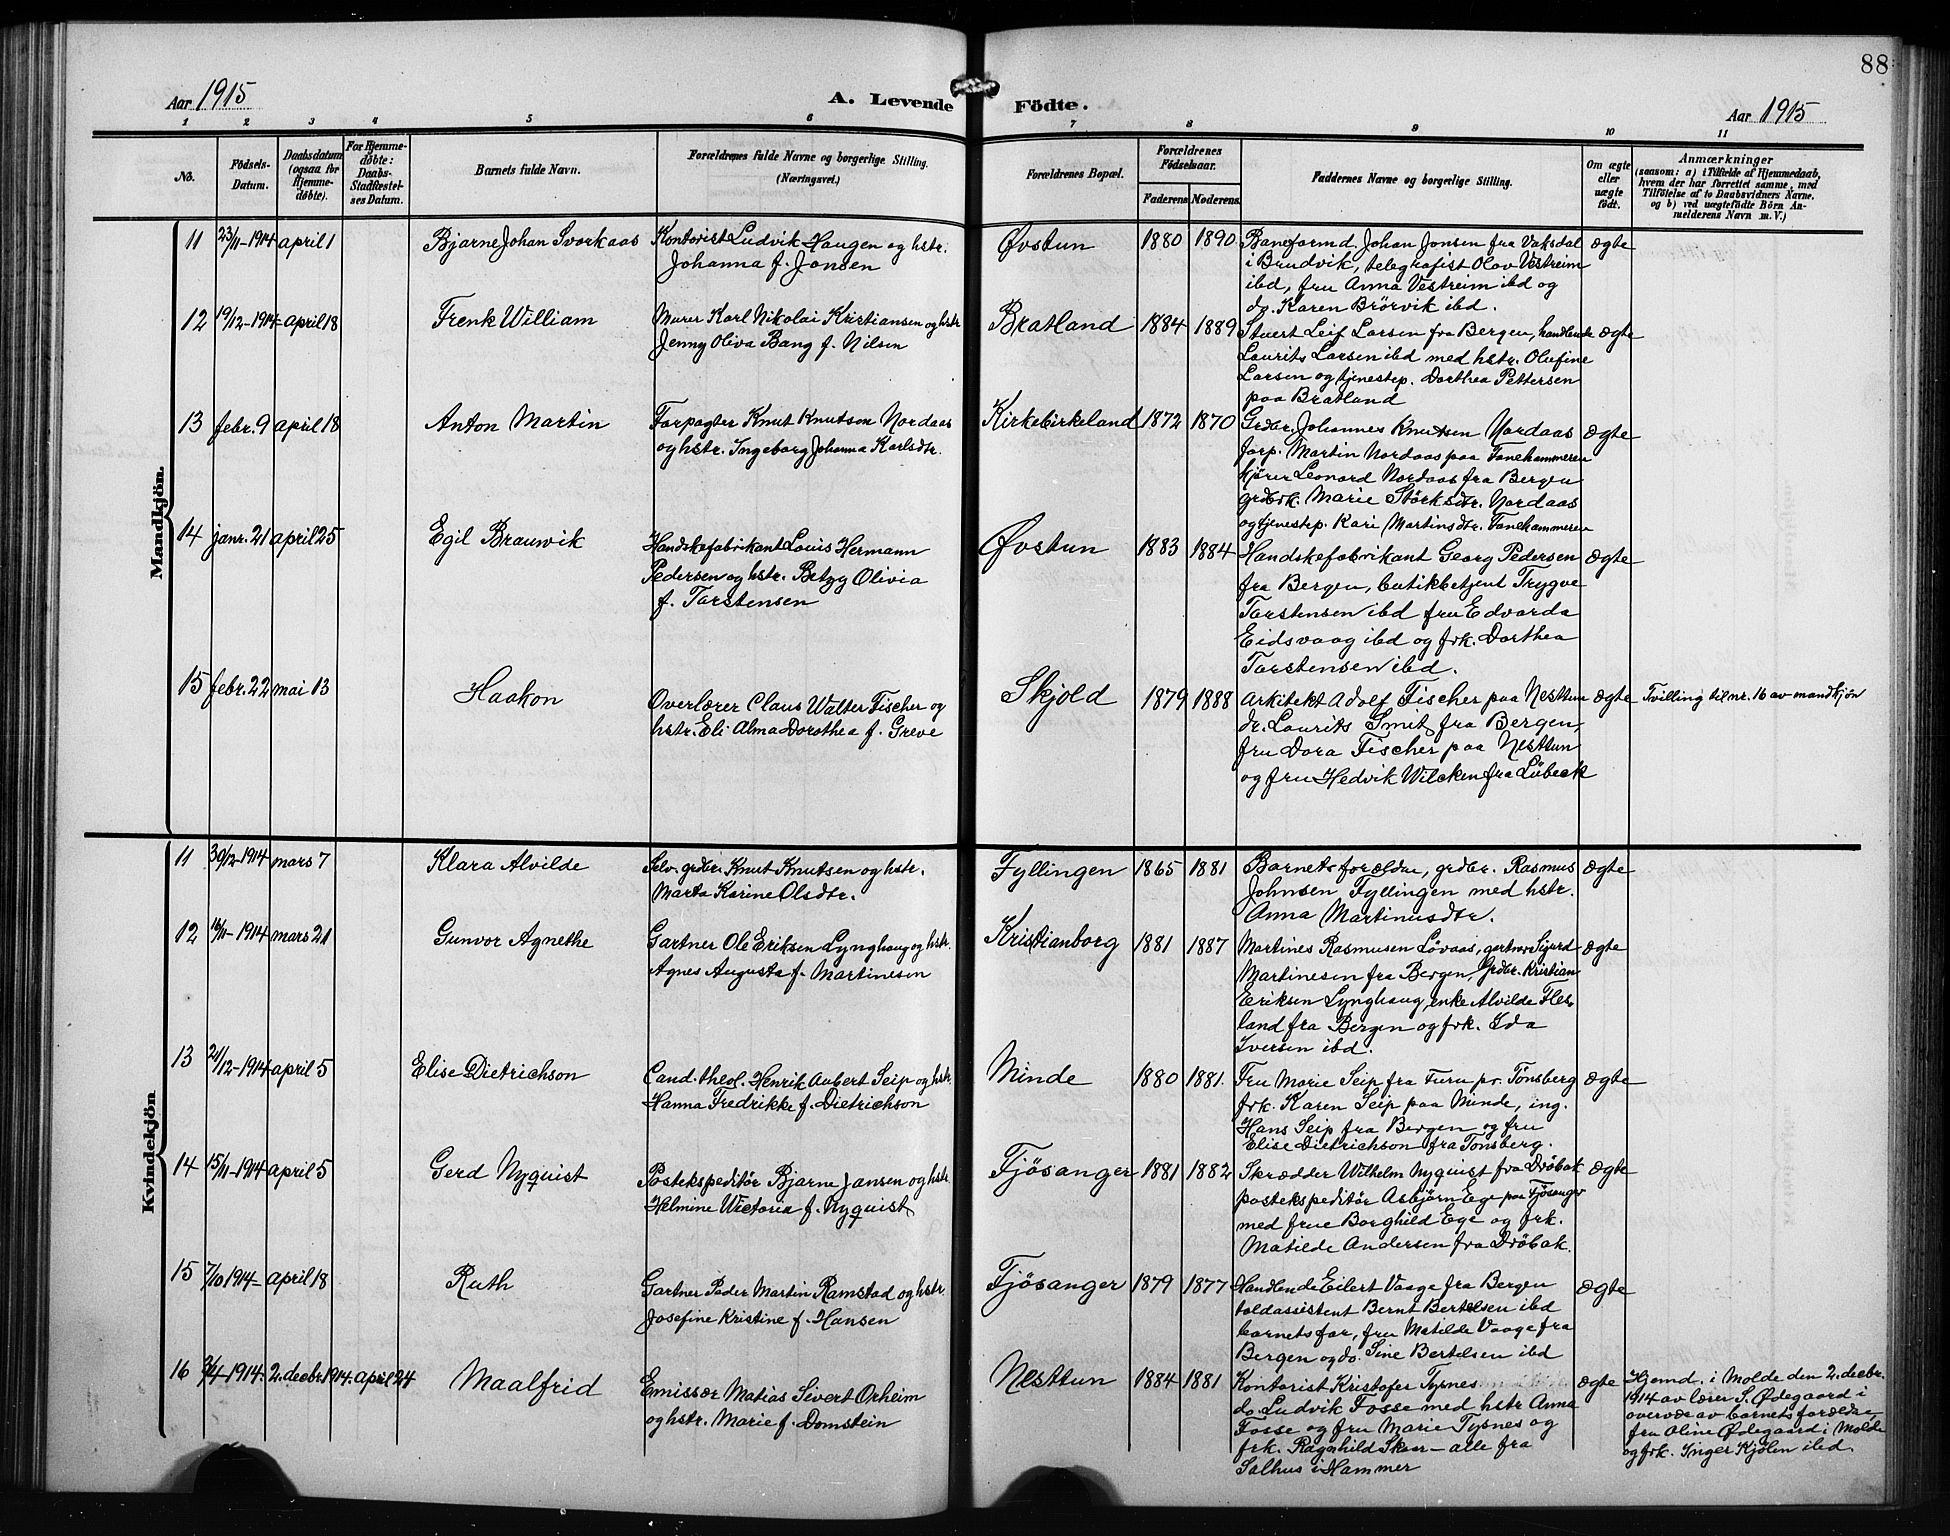 88
Aar 1915
A. Levende
Födte.
Aar 1915
1 2 3 4 5 6 7 8 9 10 11
No.
Födsels-
Datum.
Daabsdatum
(ogsaa for
Hjemme-
døbte).
For Hjemme-
døbte:
Daabs-
Stadfæstel-
ses Datum.
Barnets fulde Navn.
Forældrenes fulde Navne og borgerlige Stilling.
(Næringsvei.)
Forældrenes Bopæl.
Forældrenes
Fødselsaar.
Faderens Moderens
Faddernes Navne og borgerlige Stilling.
Om ægte
eller
uægte
født.
Anmærkninger
(saasom: a) i Tilfælde af Hjemmedaab,
hvem der har forrettet samme, med
Tilföielse af to Daabsvidners Navne,
og b) ved uægtefödte Börn An-
melderens Navn m. V.)
Mandkjön.
11 23/11-1914 april 1 Bjarne Johan Svorkaas
Kontorist Ludvik Haugen og hstr.
Johanna f. Jonsen
Øvstun 1880 1890
Baneformd. Johan Jonsen fra Vaksdal
i Brudvik, telegrafist Olav Vestreim
ibd, fru Anna Vestreim ibd og
do. Karen Brørvik ibd.
ægte
12 19/12-1914 april 18 Frenk William
Murer Karl Nikolai Kristiansen og hstr
Jenny Oliva Bang f. Nilsen
Bratland 1884 1889
Stuert Leif Larsen fra Bergen, handlende
Laurits Larsen ibd med hstr. Olufine
Larsen og tjenestep. Dorthea Pettersen
paa Bratland
ægte
13 febr. 9 april 18 Anton Martin
Forpagter Knut Knutsen Nordaas
og hstr. Ingeborg Johanna Karlsdtr.
Kirkebirkeland 1872 1870
Grdbr. Johannes Knutsen Nordaas
forp. Martin Nordaas paa Fanehammeren
kjører Leonard Nordaas fra Bergen
grdbrk. Marie Størksdtr. Nordaas
og tjenestep. Kari Martinsdtr. Fanehammeren
ægte
14 janr. 21 april 25 Egil Brauwik
Handskefabrikant Louis Hermann
Pedersen og hstr. Betzy Olivia
f. Torstensen
Øvstun 1883 1884
Handskefabrikant Georg Pedersen
fra Bergen, butikbetjent Trygve
Torstensen ibd fru Edvarda
Eidsvaag ibd og frk. Dorthea
Torstensen ibd.
ægte
15 febr. 22 mai 13 Haakon
Overlærer Claus Walter Fischer og
hstr. Eli Alma Dorothea f. Greve
Skjold 1879 1888
Arkitekt Adolf Fischer paa Nesttun
dr. Laurits Smit fra Bergen,
fru Dora Fischer paa Nesttun
og fru Hedvik Wilcken fra Lübeck
ægte
Tvilling til nr. 16 av mandkjøn
Kvindekjön
11 30/12-1914 mars 7 Klara Alvilde
Selv. grdbr. Knut Knutsen og hstr.
Marta Karine Olsdtr.
Fyllingen 1865 1881
Barnets forældre, grdbr. Rasmus
Johnsen Fyllingen med hstr.
Anna Martinusdtr.
ægte
12 16/11-1914 mars 21 Gunvor Agnethe
Gartner Ole Eriksen Lynghaug og hstr.
Agnes Augusta f. Martinesen
Kristianborg 1881 1887
Martines Rasmusen Løvaas, gertner Sigurd
Martinesen fra Bergen, Grdbr. Kristian
Eriksen Lynghaug, enke Alvilde Fles-
land fra Bergen og frk. Ida
Iversen ibd.
ægte
13 21/12-1914 april 5 Elise Dietrichson
Cand. theol. Henrik Aubert Seip og hstr.
Hanna Fredrikke f. Dietrichson
Minde 1880 1881.
Fru Marie Seip fra Furu pr. Tönsberg
frk. Karen Seip paa Minde, ing.
Hans Seip fra Bergen og fru
Elise Dietrichson fra Tönsberg.
ægte
14 15/11-1914 april 5 Gerd Nyquist
Postekspeditör Bjarne Jansen og hstr.
Helmine Wictoria f. Nyquist
Fjösanger 1881 1882
Skrædder Wilhelm Nyquist fra Dröbak
postekspeditör Asbjørn Ege paa Fjösanger
med frue Borghild Ege og frk.
Matilde Andersen fra Dröbak.
ægte
15 7/10 1914 april 18 Ruth
Gartner Peder Martin Ramstad og hstr.
Josefine Kristine f. Hansen
Fjösanger 1879 1877
Handlende Eilert Vaage fra Bergen
toldassistent Bernt Bertelsen ibd
barnets far, fru Matilde Vaage fra
Bergen og do. Sine Bertelsen ibd
ægte
16 3/4-1914. 2. decbr. 1914. april 24 Maalfrid
Emissær Matias Sivert Orheim
og hstr. Marie f. Domstein
Nesttun 1884 1881
Kontorist Kristofer Tysnes
do. Ludvik Fosse med hstr Anna
Fosse og fru Marie Tysnes og
frk. Ragnhild Skur - alle fra
Salhus i Hammer
ægte
Hjemd. i Molde den 2. decbr.
1914 av lærer S. Ødegaard i
overvær av barnets forældre,
fru Oline Ødegaard i Molde
og frk. Inger Kjølen ibd.